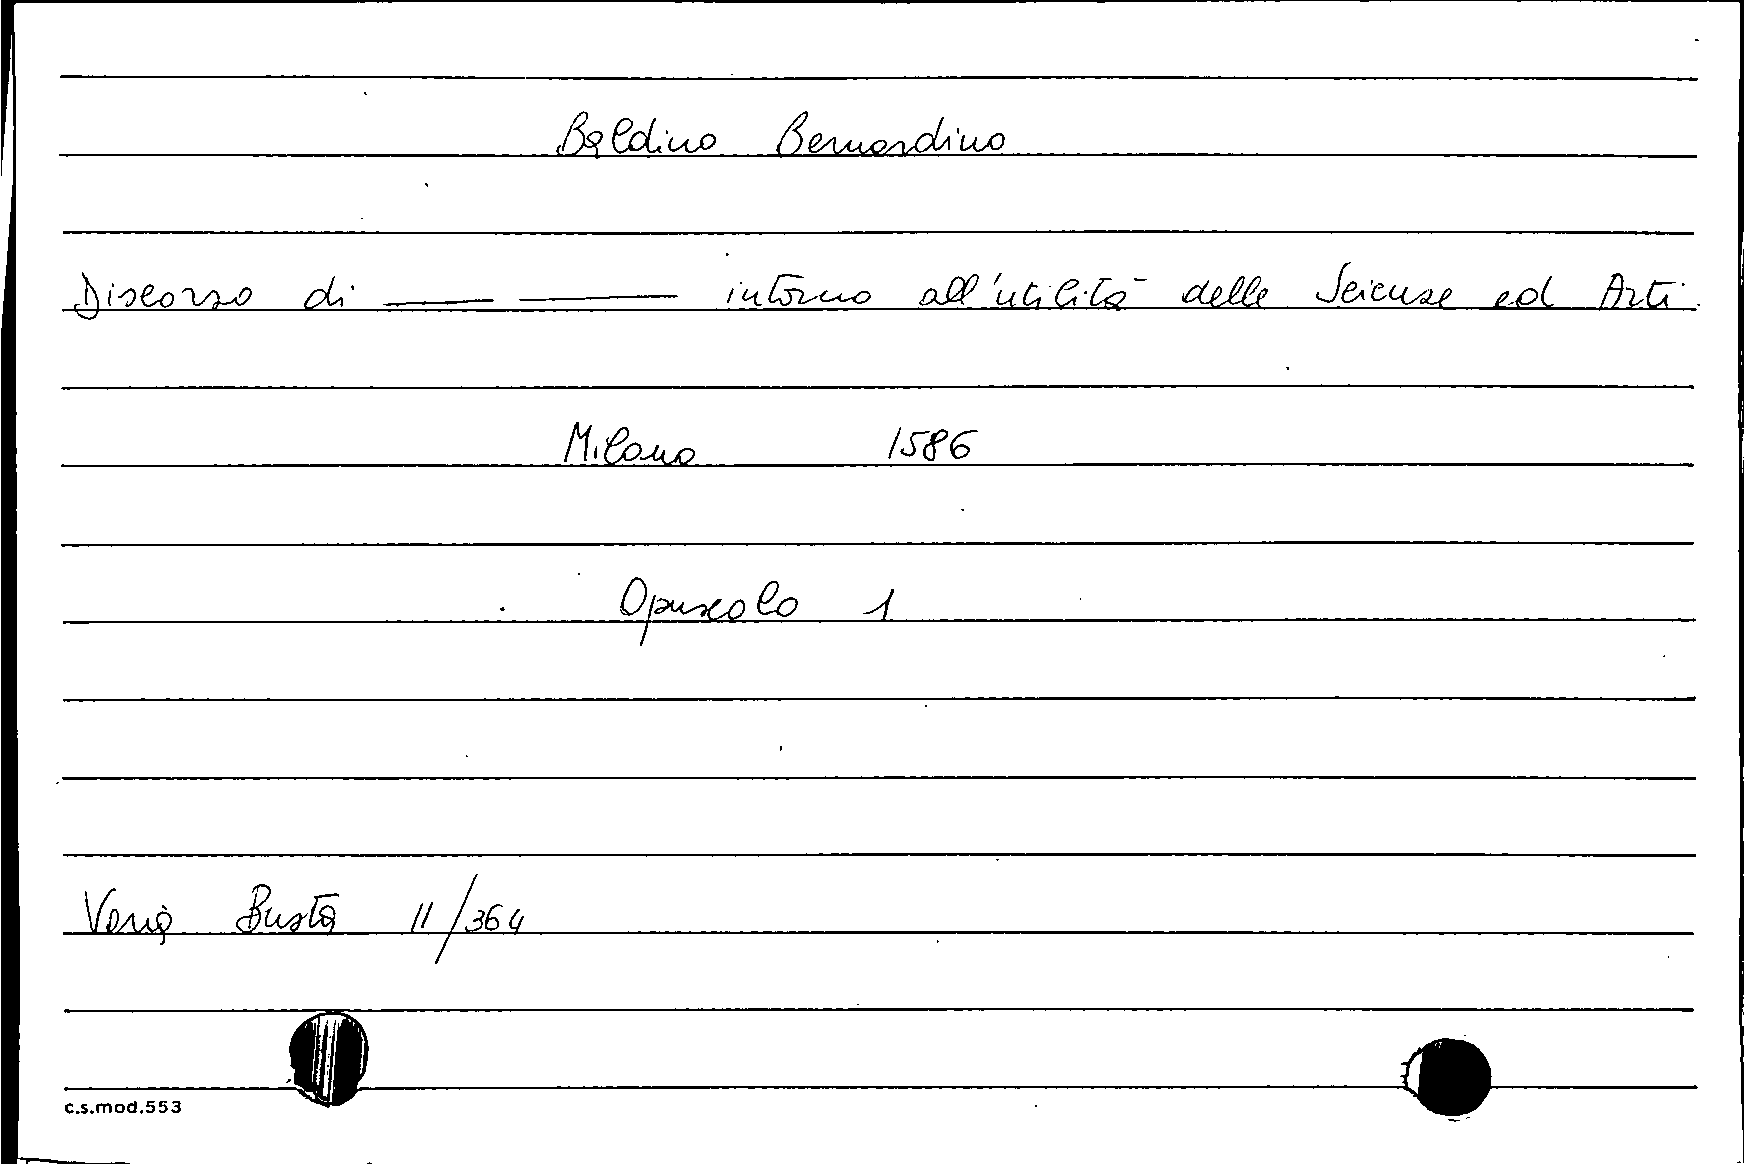 Baldino Bernardino
Discorso di —— —— intorno all'utilità delle Scienze ed Arti.
Milano 1586
Opuscolo 1
Varia Busta 11/364
c.s.mod.553